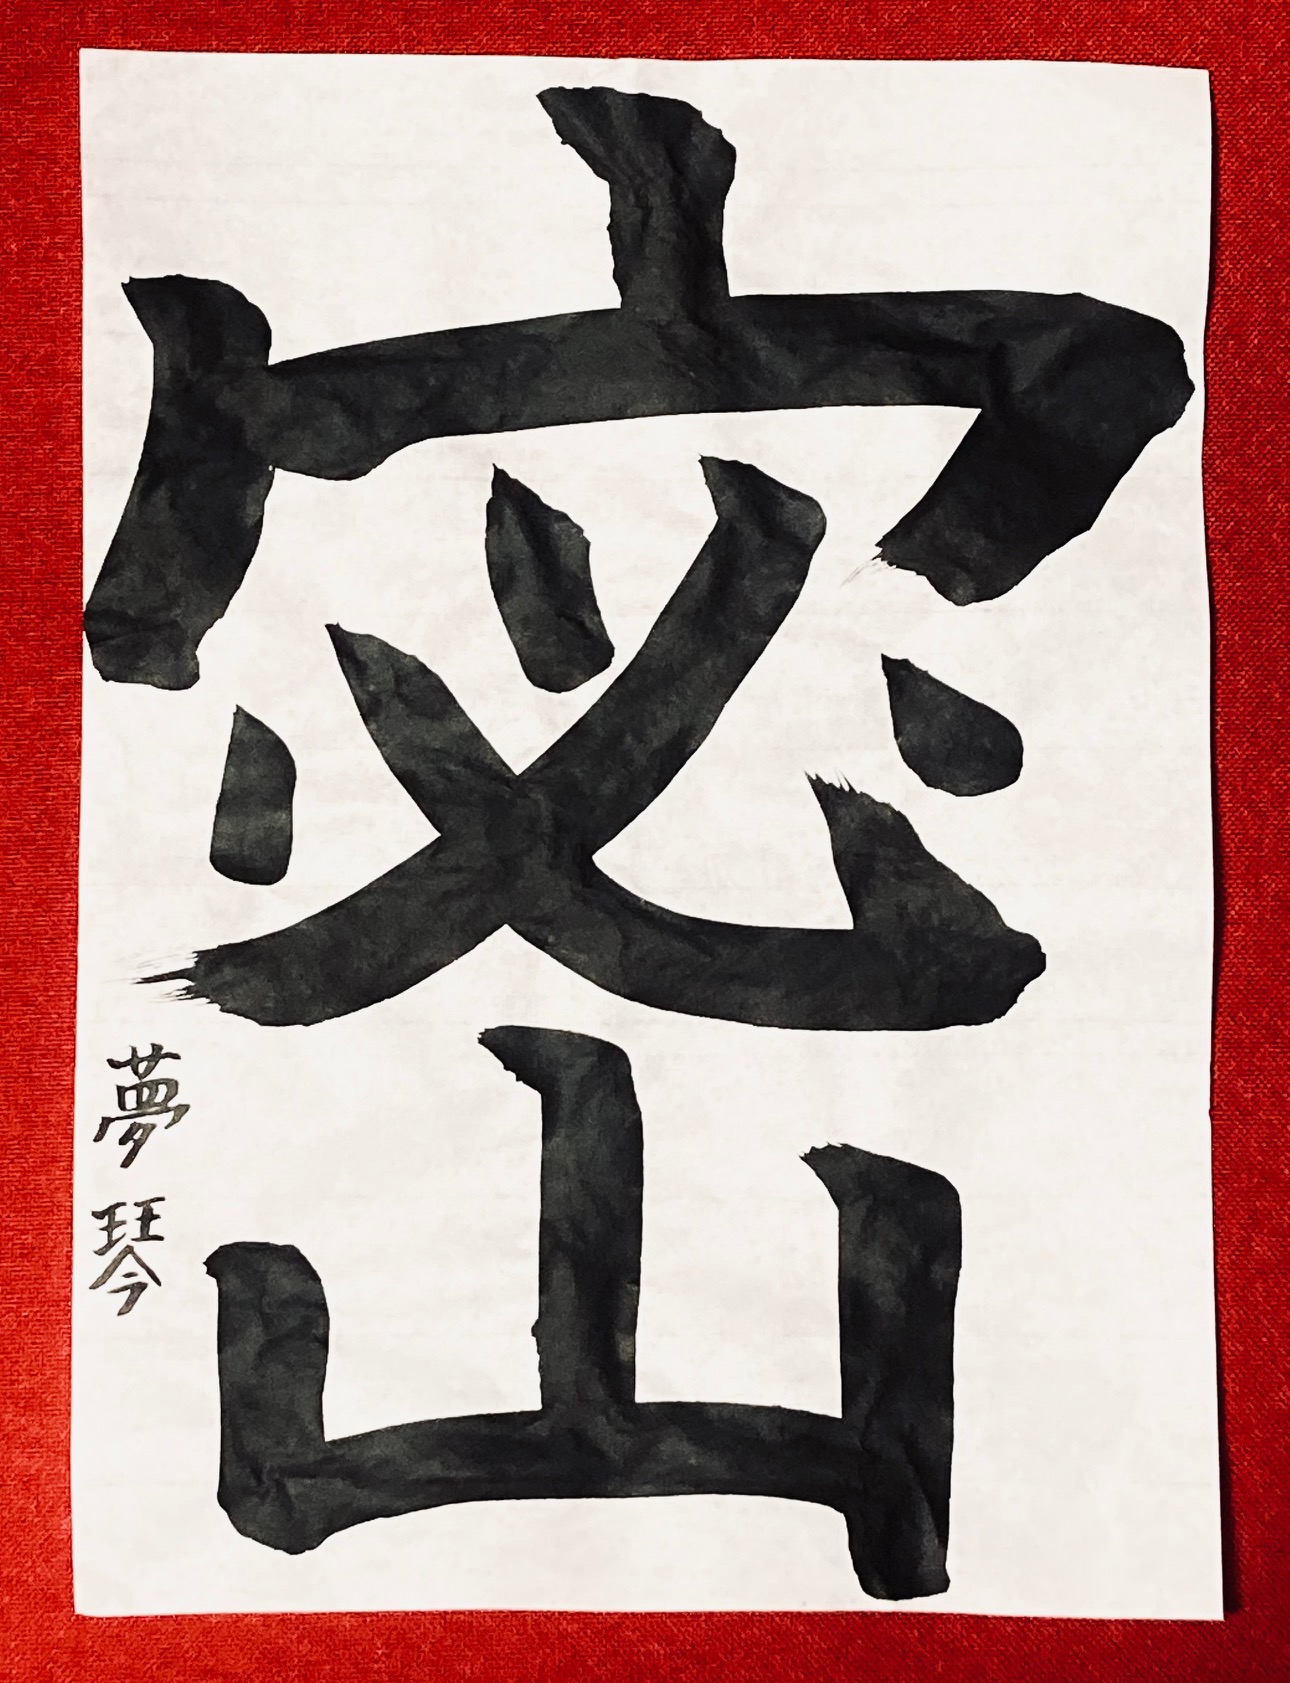 密
夢琴